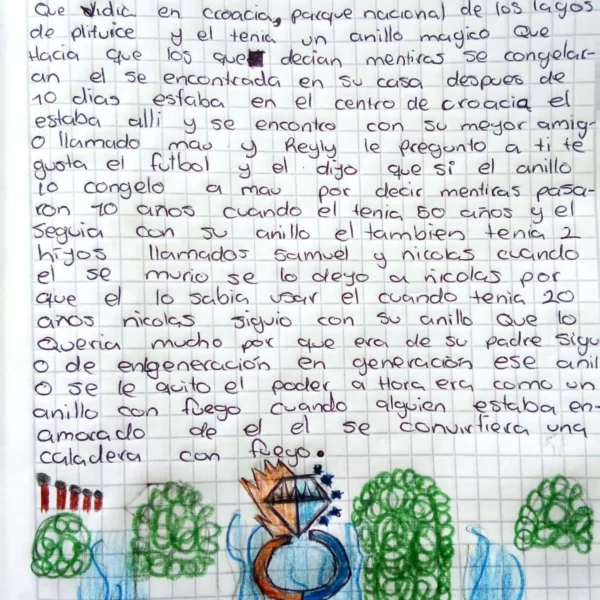 Que vidic en croacia, parque nacional de los lagos
de plituice y el tenia un anillo magico Que
Hacia que los que decian mentiras se congelar-
an el se encontrada en su casa despues de
10 dias estaba en el centro de croacia el
estaba alli y se encontro con su meyor amig-
o llamado mau y Reyly le pregunto a ti te
gusta el futbol y el dijo que si el anillo
lo congelo a mau por decir mentiras pasa-
ron 10 años cuando el tenia 50 años y el
seguia con su anillo el tambien tenia 2
hijos llamados samuel y nicolas cuando
el se murio se lo deyo a nicolas por
que el lo sabia usar el cuando tenia 20
años nicolas siguio con su anillo que lo
Queria mucho por que era de su padre sigu
o de engeneración en generación ese anil
o se le quito el poder a Hora era como un
anillo con fuego cuando alguien estaba en-
amorado de el el se convirtiera una
caladera con fuego.